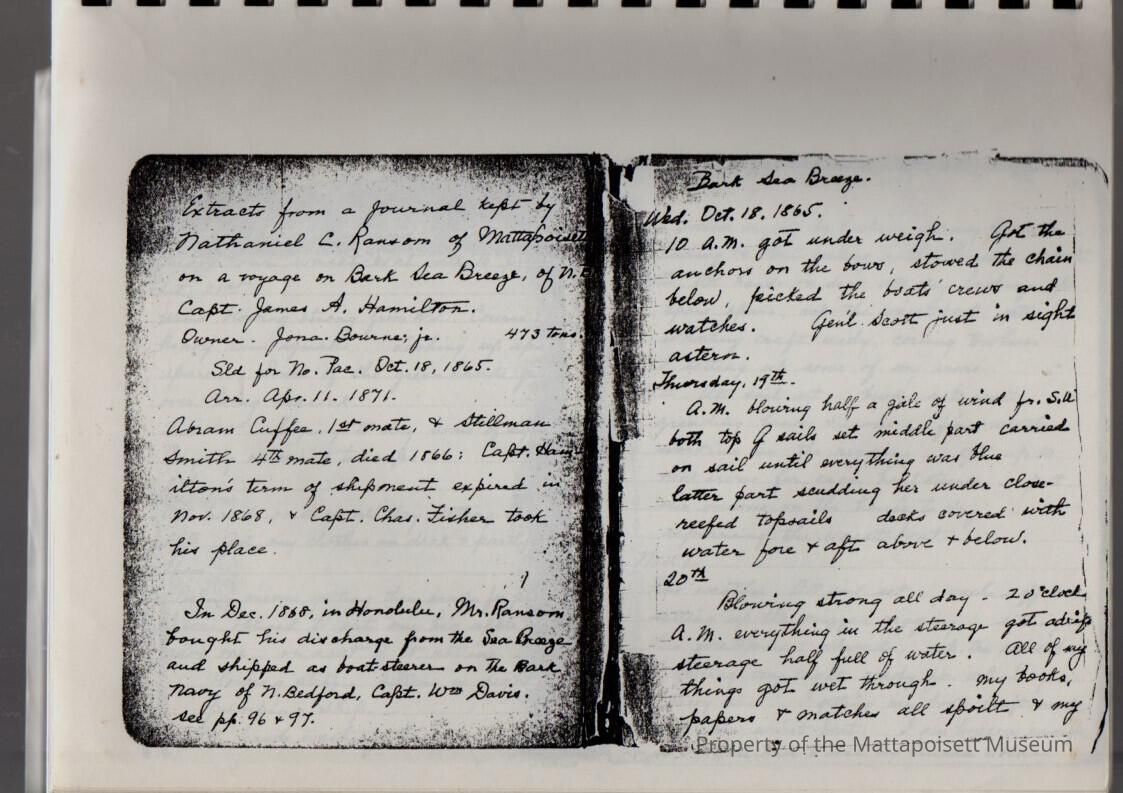 Extracts from a journal kept by
Nathaniel C. Ransom of Mattapoisett
on a voyage on Bark Sea Breeze, of N.B.
Capt. James A. Hamilton.
Owner. Jona. Bourne, jr. 473 tons.
Sld for No. Pac. Oct. 18, 1865.
Arr. Apr. 11. 1871.
Abram Cuffee, 1st mate, & Stillman
Smith 4th mate, died 1866; Capt. Ham-
ilton's term of shipment expired in
Nov. 1868, & Capt. Chas. Fisher took
his place.
In Dec. 1868, in Honolulu, Mr. Ransom
bought his discharge from the Sea Breeze
and shipped as boatsteerer on the Bark
Navy of N. Bedford, Capt. Wm Davis.
see pp. 96 & 97.
Bark Sea Breeze.
Wed. Oct. 18, 1865.
10 A.M. got under weigh. Got the
anchors on the bows, stowed the chain
below, picked the boats' crews and
watches. Gen'l Scott just in sight
astern.
Thursday, 19th.
A.M. blowing half a gale of wind fr. S.W
both top G sails set middle part carried
on sail until everything was blue
latter part scudding her under close-
reefed topsails decks covered with
water fore & aft above & below.
20th
Blowing strong all day. 2 o'clock
A.M. everything in the steerage got adrift
steerage half full of water. All of my
things got wet through. My books,
papers & matches all spoilt & my
Property of the Mattapoisett Museum